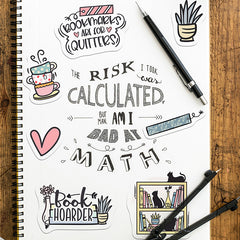 BOOKMARKS
ARE FOR
QUITTERS
THE RISK I TOOK
was
CALCULATED,
BUT
MAN, AM I
BAD AT
MATH
Book
HOARDER